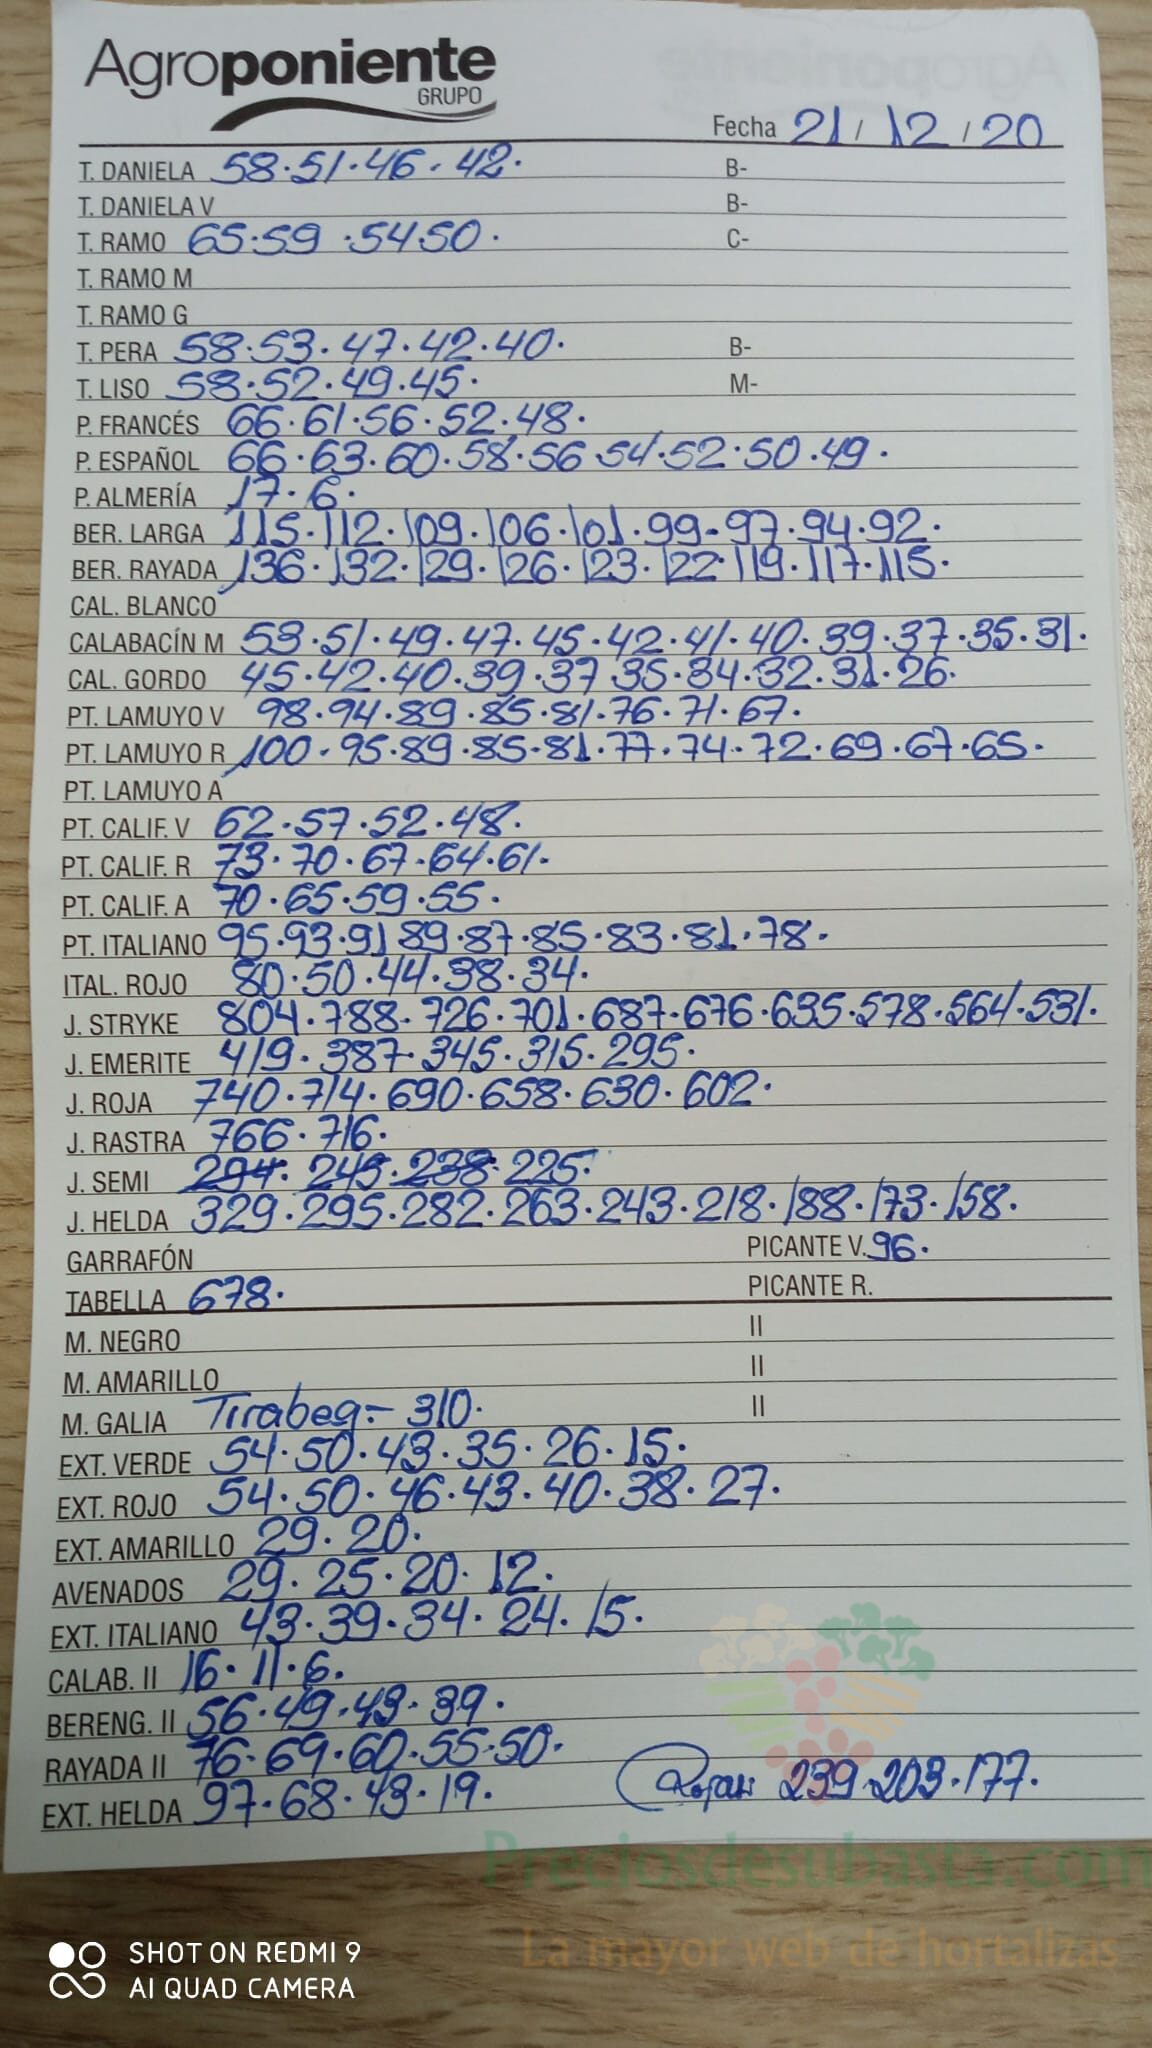 Agroponiente
GRUPO
Fecha 21 / 12 / 20
T. DANIELA 58.51.46.42. B-
T. DANIELA V B-
T. RAMO 65.59.54.50. C-
T. RAMO M
T. RAMO G
T. PERA 58.53.47.42.40. B-
T. LISO 58.52.49.45. M-
P. FRANCÉS 66.61.56.52.48.
P. ESPAÑOL 66.63.60.58.56 54.52.50.49.
P. ALMERÍA 17.6.
BER. LARGA 115.112.109.106.101.99.97.94.92.
BER. RAYADA 136.132.129.126.123.122.119.117.115.
CAL. BLANCO
CALABACÍN M 53.51.49.47.45.42.41.40.39.37.35.31.
CAL. GORDO 45.42.40.39.37 35.34.32.31.26.
PT. LAMUYO V 98.94.89.85.81.76.71.67.
PT. LAMUYO R 100.95.89.85.81.77.74.72.69.67.65.
PT. LAMUYO A
PT. CALIF. V 62.57.52.48.
PT. CALIF. R 73.70.67.64.61.
PT. CALIF. A 70.65.59.55.
PT. ITALIANO 95.93.91 89.87.85.83.81.78.
ITAL. ROJO 80.50.44.38.34.
J. STRYKE 804.788.726.701.687.676.635.578.564.531.
J. EMERITE 419.387.345.315.295.
J. ROJA 740.714.690.658.630.602.
J. RASTRA 766.716.
J. SEMI 294.245.238.225.
J. HELDA 329.295.282.263.243.218.188.173.158.
GARRAFÓN PICANTE V. 96.
TABELLA 678. PICANTE R.
M. NEGRO II
M. AMARILLO II
M. GALIA Tirabeq- 310. II
EXT. VERDE 54.50.43.35.26.15.
EXT. ROJO 54.50.46.43.40.38.27.
EXT. AMARILLO 29.20.
AVENADOS 29.25.20.12.
EXT. ITALIANO 43.39.34.24.15.
CALAB. II 16.11.6.
BERENG. II 56.49.43.39.
RAYADA II 76.69.60.55.50.
EXT. HELDA 97.68.43.19. 239.203.177.
Preciosdesubasta.com
La mayor web de hortalizas
SHOT ON REDMI 9
AI QUAD CAMERA